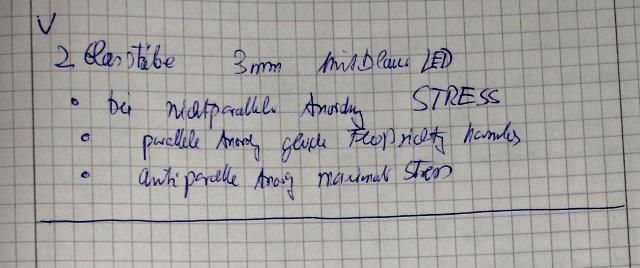 V
2 Glasstäbe 3mm mit blau LED
• bei nichtparallele Anordng STRESS
• parallele Anordg gleiche harmlos
• antiparallele Anordg maximal Stress